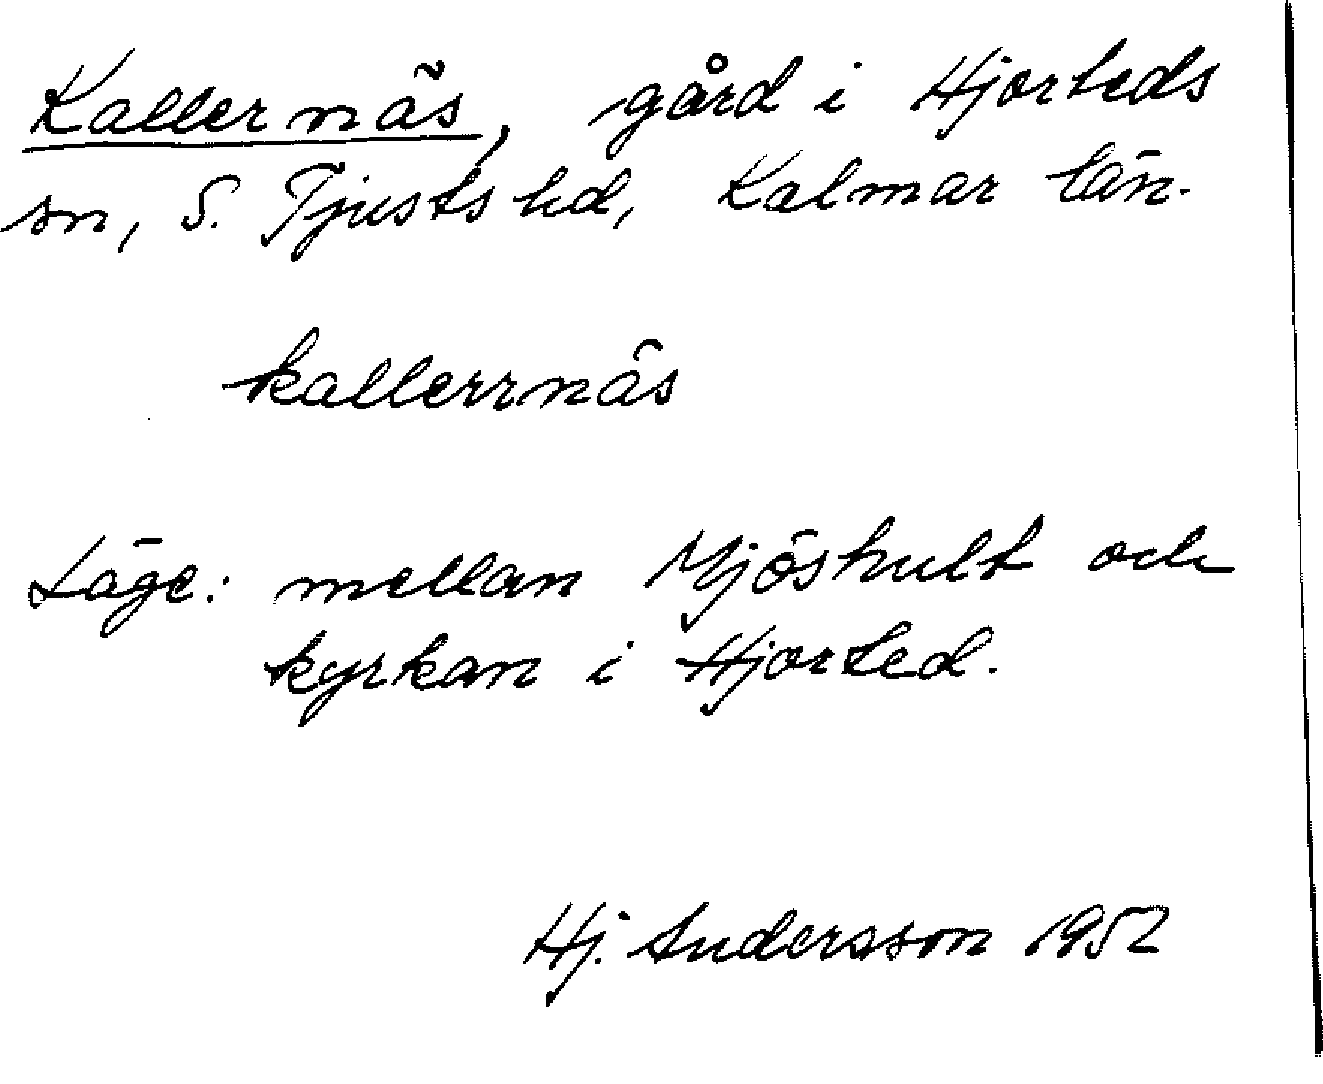 Kallernäs, gård i Hjorteds
sn, S. Tjusts hd, Kalmar län.
kallerrnäs
Läge: mellan Mjöshult och
kyrkan i Hjorted.
Hj. Andersson 1952